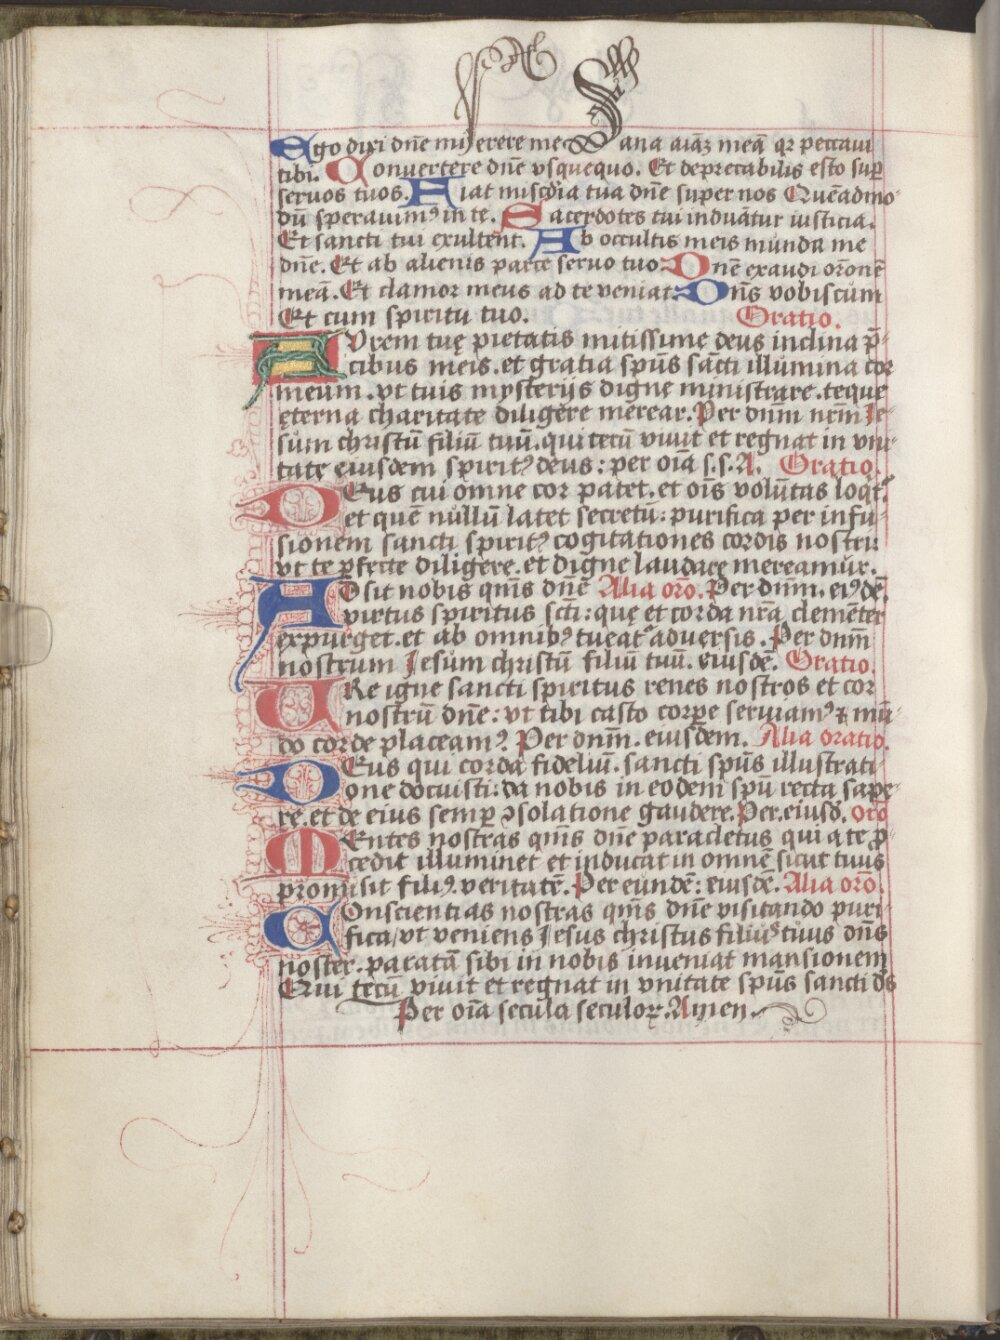 Ego dixi dn̄e miserere mei Sana aīaʒ meā qꝛ peccaui
tibi. Conuertere dn̄e vsquequo. Et deprecabilis esto sup̄
seruos tuos. Fiat miscd̄ia tua dn̄e super nos Quēadmo-
dū sperauimꝰ in te. Sacerdotes tui induātur iusticia.
Et sancti tui exultent. Ab occultis meis munda me
dn̄e. Et ab alienis parce seruo tuo. Dnē exaudi or̄onē
meā. Et clamor meus ad te veniat. Dn̄s vobiscum
Et cum spiritu tuo. Oratio.
AVrem tuę pietatis mitissime deus inclina p̄-
cibus meis. et gratia spūs sācti illumina cor
meum. vt tuis mysterijs digne ministrare. teque
ęterna charitate diligere merear. Per dnm̄ nrm̄ Ie-
sum christū filiū tuū. qui tecū viuit et regnat in vni-
tate eiusdem spiritꝰ deus: per oīa s.s. A. Oratio.
DEus cui omne cor patet. et oīs voluntas loqt᷑.
et quē nullū latet secretū: purifica per infu-
sionem sancti spiritꝰ cogitationes cordis nostri
vt te pfecte diligere. et digne laudare mereamur.
ADsit nobis qm̄s dn̄e Alia oro. Per dnm̄. eiꝰdē.
virtus spiritus scti: quę et corda nrā clementer
expurget. et ab omnibꝰ tueat᷑ aduersis. Per dnm̄
nostrum Iesum christū filiū tuū. eiusdē. Oratio.
VRe igne sancti spiritus renes nostros et cor
nostrū dn̄e: vt tibi casto corpe seruiamꝰ ⁊ mū-
do corde placeamꝰ. Per dnm̄. eiusdem. Alia oratio.
DEus qui corda fideliū. sancti spūs illustrati-
one docuisti: da nobis in eodem spū recta sape-
re. et de eius semp ꝯsolatione gaudere. Per. eiusd. oro
MEntes nostras qm̄s dn̄e paracletus qui a te p̄-
cedit illuminet et inducat in omnē sicut tuus
promisit filiꝰ. veritatē. Per eundē: eiusdē. Alia oro.
COnscientias nostras qm̄s dn̄e visitando puri-
fica/vt veniens Iesus christus filiuꝰ tuus dn̄s
noster. paratā sibi in nobis inueniat mansionem
Qui tecū viuit et regnat in vnitate spūs sancti ds̄
Per oīa secula seculoꝝ. Amen.